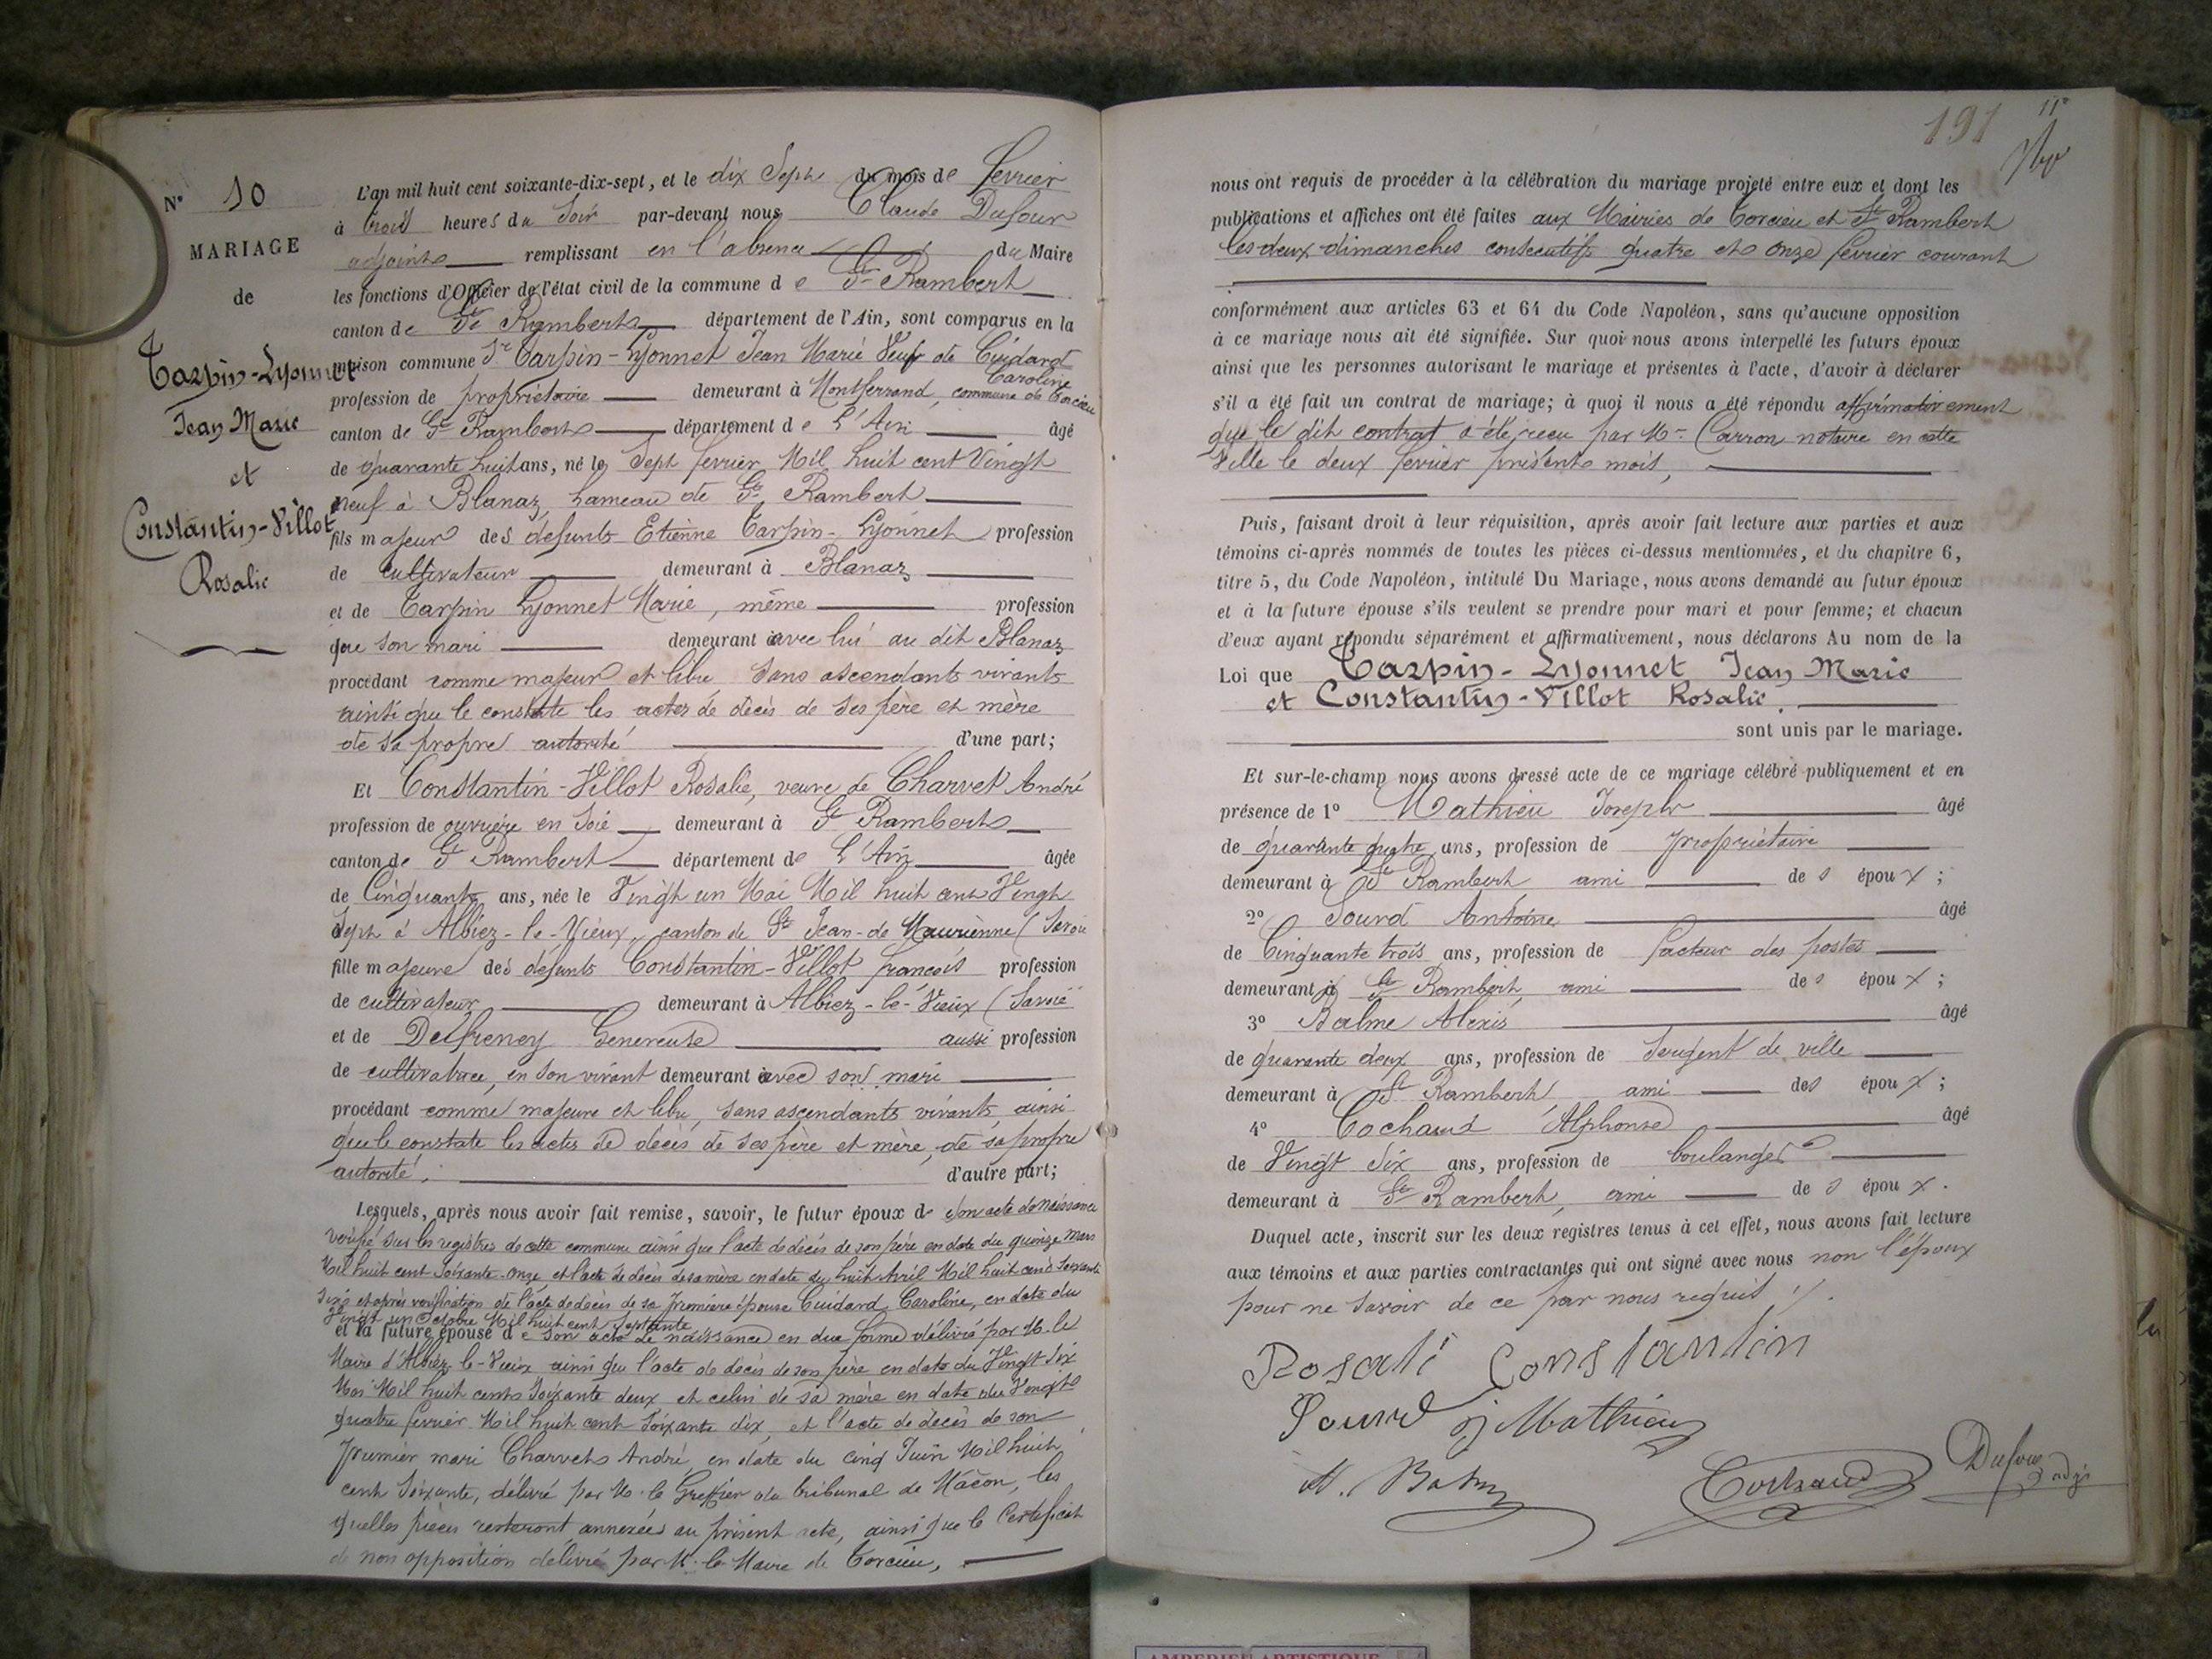 N° 10
MARIAGE
de
Tarpin-Lyonnet
Jean Marie
et
Constantin-Villot
Rosalie
L'an mil huit cent soixante-dix-sept, et le dix Sept du mois de février
à trois heures du Soir par-devant nous Claude Dufour
adjoint remplissant en l'absence du Maire
les fonctions d'Officier de l'état civil de la commune de St Rambert
canton de St Rambert département de l'Ain, sont comparus en la
maison commune Sr Tarpin-Lyonnet Jean Marie Veuf de Cuidard
Caroline
profession de propriétaire demeurant à Montferrand, commune de Torcieu
canton de St Rambert département de L'Ain âgé
de quarante huit ans, né le Sept février Mil huit cent Vingt
neuf à Blanaz, hameau de St Rambert
fils majeur des défunts Etienne Tarpin-Lyonnet profession
de cultivateur demeurant à Blanaz
et de Tarpin Lyonnet Marie, même profession
que son mari demeurant avec lui au dit Blanaz
procédant comme majeur et libre sans ascendants vivants
ainsi que le constate les actes de décès de ses père et mère
de sa propre autorité d'une part;
Et Constantin-Villot Rosalie, veuve de Charvet André
profession de ouvrière en Soie demeurant à St Rambert
canton de St Rambert département de L'Ain âgée
de Cinquante ans, née le Vingt un Mai Mil huit cent Vingt
Sept à Albiez-le-Vieux, canton de St Jean-de Maurienne (Savoie
fille majeure des défunts Constantin-Villot françois profession
de cultivateur demeurant à Albiez-le-Vieux (Savoie
et de Delfreney Genereuse aussi profession
de cultivatrice, en son vivant demeurant avec son mari
procédant comme majeure et libre, sans ascendants vivants, ainsi
que le constate les actes de décès de ses père et mère, de sa propre
autorité. d'autre part;
Lesquels, après nous avoir fait remise, savoir, le futur époux de son acte de naissance
vérifié sur les registres de cette commune ainsi que l'acte de décès de son père en date du quinze Mars
Mil huit cent Soixante-Onze et l'acte de décès de sa mère en date du huit Avril Mil huit cent Soixante
Six et après vérification de l'acte de décès de sa première épouse Cuidard Caroline, en date du
Vingt un Octobre Mil huit cent Septante
et la future épouse de son acte de naissance en due forme délivré par M. le
Maire d'Albiez-le-Vieux ainsi que l'acte de décès de son père en date du Vingt Six
Mai Mil huit cents Soixante deux et celui de sa mère en date du Vingt
quatre février Mil huit cent Soixante dix, et l'acte de décès de son
premier mari Charvet André, en date du cinq Juin Mil huit
cent Soixante, délivré par M. le Greffier du tribunal de Mâcon, les
quelles pièces resteront annexées au présent acte, ainsi que le Certificat
de non opposition délivré par M. le Maire de Torcieu,
191
11e
nous ont requis de procéder à la célébration du mariage projeté entre eux et dont les
publications et affiches ont été faites aux Mairies de Torcieu et St Rambert
les deux dimanches consécutifs quatre et onze février courant
conformément aux articles 63 et 64 du Code Napoléon, sans qu'aucune opposition
à ce mariage nous ait été signifiée. Sur quoi nous avons interpellé les futurs époux
ainsi que les personnes autorisant le mariage et présentes à l'acte, d'avoir à déclarer
s'il a été fait un contrat de mariage; à quoi il nous a été répondu affirmativement
que le dit contrat a été reçu par Me Carron notaire en cette
Ville le deux février présent mois,
Puis, faisant droit à leur réquisition, après avoir fait lecture aux parties et aux
témoins ci-après nommés de toutes les pièces ci-dessus mentionnées, et du chapitre 6,
titre 5, du Code Napoléon, intitulé Du Mariage, nous avons demandé au futur époux
et à la future épouse s'ils veulent se prendre pour mari et pour femme; et chacun
d'eux ayant répondu séparément et affirmativement, nous déclarons Au nom de la
Loi que Tarpin-Lyonnet Jean Marie
et Constantin-Villot Rosalie.
sont unis par le mariage.
Et sur-le-champ nous avons dressé acte de ce mariage célébré publiquement et en
présence de 1° Mathieu Joseph âgé
de quarante quatre ans, profession de propriétaire
demeurant à St Rambert ami des époux;
2° Sourd Antoine âgé
de Cinquante trois ans, profession de facteur des postes
demeurant à St Rambert, ami des époux;
3° Balme Alexis âgé
de quarante deux ans, profession de Sergent de ville
demeurant à St Rambert, ami des époux;
4° Cochaud Alphonse âgé
de Vingt Six ans, profession de boulanger
demeurant à St Rambert, ami des époux.
Duquel acte, inscrit sur les deux registres tenus à cet effet, nous avons fait lecture
aux témoins et aux parties contractantes qui ont signé avec nous non l'époux
pour ne savoir de ce par nous requis ./.
Rosali Constantin
Sourd j Mathieu
Dufour adjt
AMBERIEU ARTISTIQUE